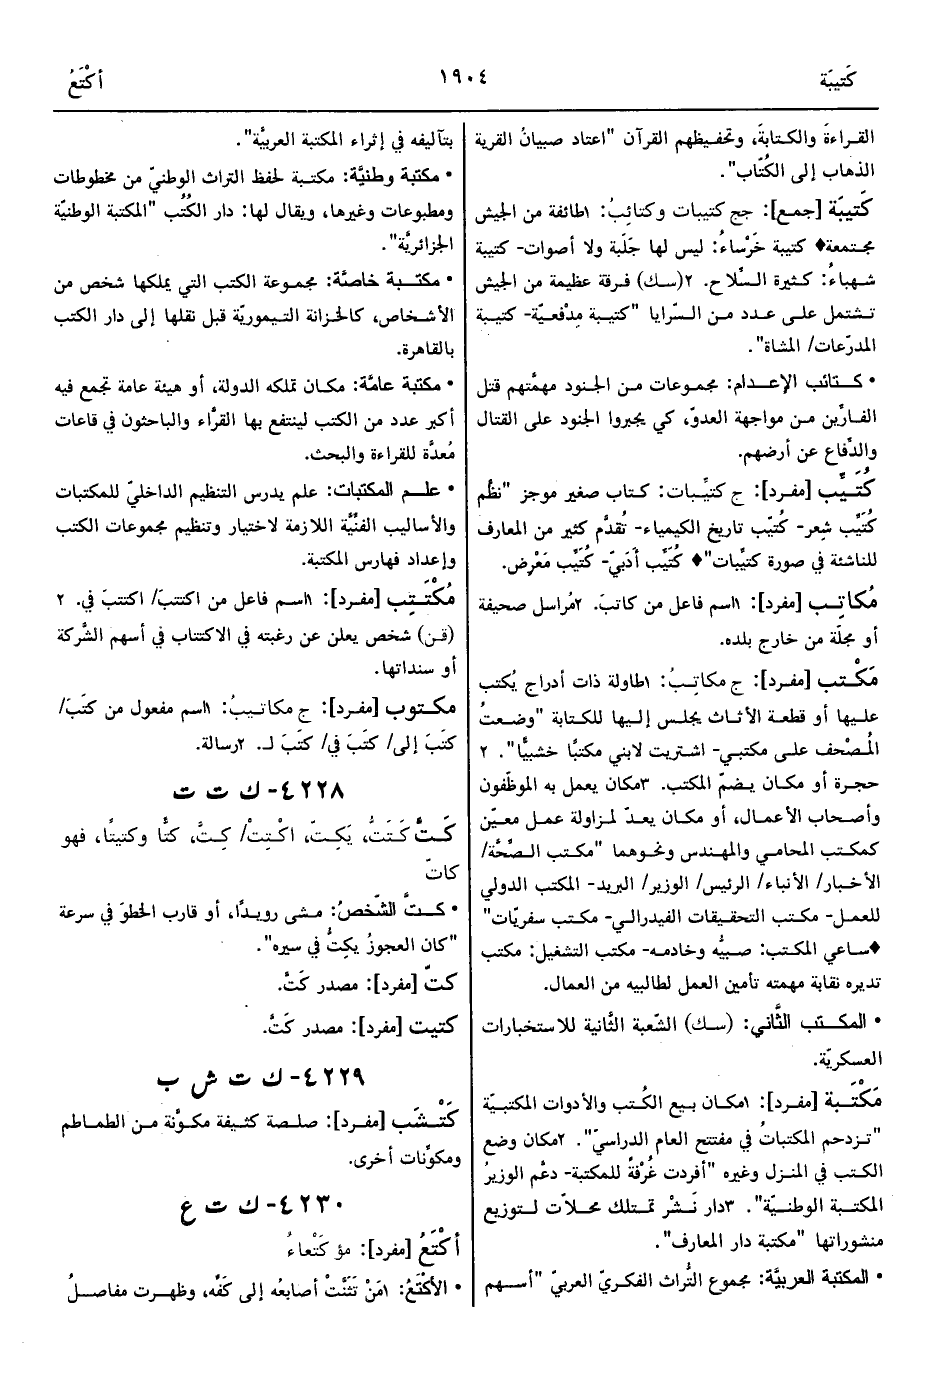 كَتيبَة
١٩٠٤
أكْتَعُ
القراءةَ والكتابةَ، وتحفيظهم القرآن "اعتاد صبيانُ القرية
الذهاب إلى الكُتّاب".
كَتيبَة [جمع]: جج كتيبات وكتائبُ: ١طائفة من الجيش
مجتمعة♦ كتيبة خَرْساءُ: ليس لها جَلَبة ولا أصوات- كتيبة
شهباءُ: كثيرة السِّلاح. ٢(سك) فرقة عظيمة من الجيش
تشتمل على عدد من السّرايا "كتيبة مِدْفعيّة- كتيبة
المدرّعات/ المشاة".
• كتائب الإعدام: مجموعات من الجنود مهمَّتهم قتل
الفارِّين من مواجهة العدوّ، كي يجبروا الجنود على القتال
والدِّفاع عن أرضهم.
كُتَيِّب [مفرد]: ج كتيِّبات: كتاب صغير موجز "نظَم
كُتيِّب شِعر- كُتيّب تاريخ الكيمياء- تُقدَّم كثير من المعارف
للناشئة في صورة كتيِّبات"♦ كُتَيِّب أدَبيّ- كُتَيِّب مَعْرِض.
مُكاتِب [مفرد]: ١اسم فاعل من كاتبَ. ٢مُراسل صحيفة
أو مجلّة من خارج بلده.
مَكْتب [مفرد]: ج مكاتبُ: ١طاولة ذات أدراج يُكتب
عليها أو قطعة الأثاث يجلس إليها للكتابة "وضعتُ
المُصْحف على مكتبي- اشتريت لابني مكتبًا خشبيًّا". ٢
حجرة أو مكان يضمّ المكتب. ٣مكان يعمل به الموظّفون
وأصحاب الأعمال، أو مكان يعدّ لمزاولة عمل معيّن
كمكتب المحامي والمهندس ونحوهما "مكتب الصِّحَّة/
الأخبار/ الأنباء/ الرئيس/ الوزير/ البريد- المكتب الدولي
للعمل- مكتب التحقيقات الفيدرالي- مكتب سفريّات"
♦ساعي المكتب: صبيُّه وخادمه- مكتب التشغيل: مكتب
تديره نقابة مهمته تأمين العمل لطالبيه من العمال.
• المكتب الثَّاني: (سك) الشّعبة الثّانية للاستخبارات
العسكريّة.
مَكْتَبة [مفرد]: ١مكان بيع الكُتب والأدوات المكتبيّة
"تزدحم المكتباتُ في مفتتح العام الدراسيّ". ٢مكان وضع
الكتب في المنزل وغيره "أفردت غُرْفةً للمكتبة- دعَّم الوزيرُ
المكتبة الوطنيّة". ٣دار نَشْر تمتلك محلاّت لتوزيع
منشوراتها "مكتبة دار المعارف".
• المكتبة العربيَّة: مجموع التُّراث الفكريّ العربيّ "أسهم
بتآليفه في إثراء المكتبة العربيَّة".
• مكتبة وطنيَّة: مكتبة لحفظ التراث الوطنيّ من مخطوطات
ومطبوعات وغيرها، ويقال لها: دار الكُتُب "المكتبة الوطنيّة
الجزائريَّة".
• مكتبة خاصَّة: مجموعة الكتب التي يملكها شخص من
الأشخاص، كالخزانة التيموريّة قبل نقلها إلى دار الكتب
بالقاهرة.
• مكتبة عامَّة: مكان تملكه الدولة، أو هيئة عامة تجمع فيه
أكبر عدد من الكتب لينتفع بها القرَّاء والباحثون في قاعات
مُعدَّة للقراءة والبحث.
• علم المكتبات: علم يدرس التنظيم الداخليّ للمكتبات
والأساليب الفنِّيَّة اللازمة لاختيار وتنظيم مجموعات الكتب
وإعداد فهارس المكتبة.
مُكْتَتِب [مفرد]: ١اسم فاعل من اكتتبَ/ اكتتبَ في. ٢
(قن) شخص يعلن عن رغبته في الاكتتاب في أسهم الشَّركة
أو سنداتها.
مكتوب [مفرد]: ج مكاتيبُ: ١اسم مفعول من كتَبَ/
كتَبَ إلى/ كتَبَ في/ كتَبَ لـ. ٢رسالة.
٤٢٢٨- ك ت ت
كَتَّ كَتَتُ، يَكِتّ، اكْتِتْ/ كِتَّ، كتًّا وكتيتًا، فهو
كاتّ
• كتَّ الشَّخصُ: مشى رويدًا، أو قارب الخطوَ في سرعة
"كان العجوزُ يكِتُّ في سيره".
كتّ [مفرد]: مصدر كَتَّ.
كتيت [مفرد]: مصدر كَتَّ.
٤٢٢٩- ك ت ش ب
كَتْشَب [مفرد]: صلصة كثيفة مكوَّنة من الطماطم
ومكوِّنات أخرى.
٤٢٣٠- ك ت ع
أكْتَعُ [مفرد]: مؤ كَتْعاءُ
• الأكْتَعُ: ١مَنْ تَثَنَّتْ أصابعُه إلى كَفِّه، وظهرت مفاصلُ